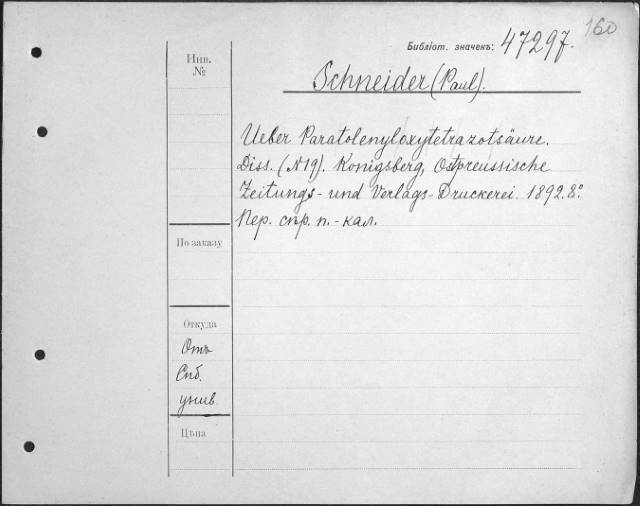 160
Библіот. значекъ: 47297.
Инв.
№
Schneider (Paul).
Ueber Paratolenyloxytetrazotsäure.
Diss. (N 19). Königsberg, Ostpreussische
Zeitungs- und Verlags-Druckerei. 1892. 8º.
Пер. спр. п.-кал.
По заказу
Откуда
Отъ
Спб.
унив.
Цѣна